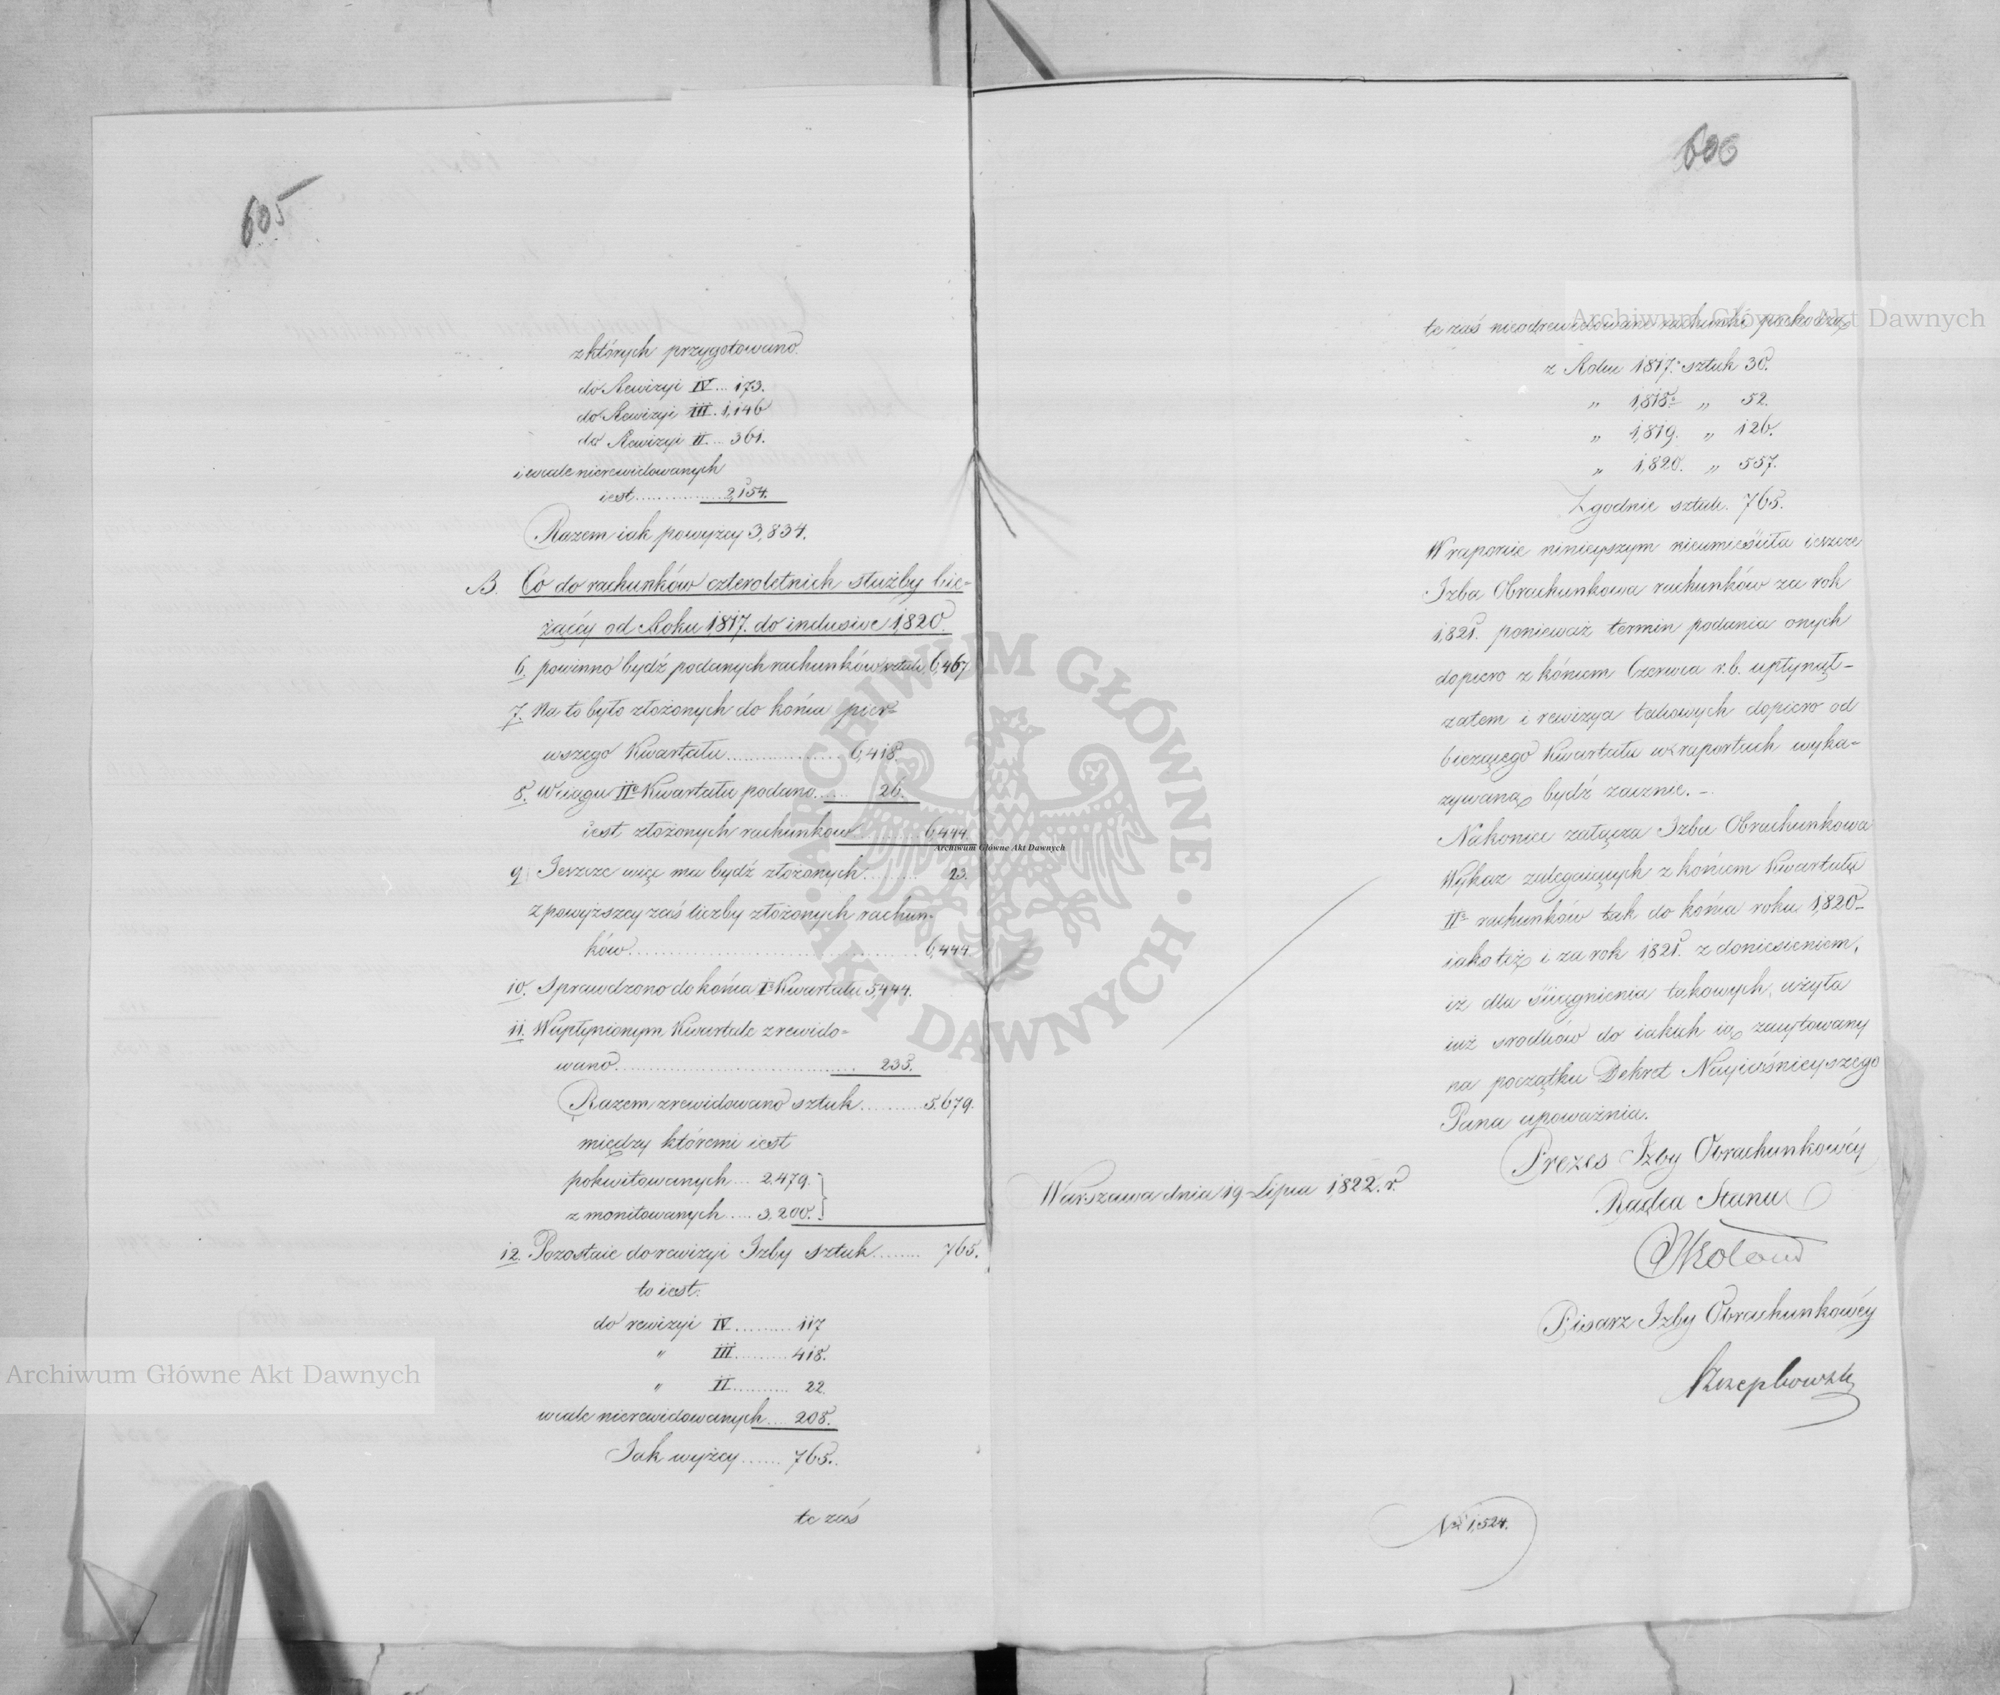 605
z których przygotowano.
do Rewizyi IV... 173.
do Rewizyi III. 1,146
do Rewizyi II... 361.
i wcale nierewidowanych
iest............... 2,154.
Razem iak powyżey 3,834.
B. Co do rachunków czteroletnich służby bie-
żącéy od Roku 1817. do inclusive 1,820.
6. powinno bydź podanych rachunków sztuk 6,467
7. Na to było złożonych do końca pier-
wszego Kwartału.................. 6,418.
8. W ciągu IIo Kwartału podano...... 26.
iest złożonych rachunków........... 6,444.
9. Jeszcze więc ma bydź złożonych......... 23.
z powyższey zaś liczby złożonych rachun-
ków........................................ 6,444
10. Sprawdzono do końca Io Kwartału 5,444.
11. W upłynionym Kwartale zrewido-
wano...................................... 235.
Razem zrewidowano sztuk.......... 5.679.
między któremi iest
pokwitowanych... 2.479.
z monitowanych.... 3,200.
12. Pozostaie do rewizyi Izby sztuk........ 765.
to iest.
do rewizyi IV.......... 117
" III.......... 418.
" II........... 22.
wcale nierewidowanych.... 208.
Jak wyżey....... 765.
te zaś
606
te zaś nieodrewidowane rachunki pochodzą
z Roku 1817. sztuk 30.
" 1,818. " 52.
" 1,819. " 126.
" 1,820. " 557.
Zgodnie sztuk. 765.
W raporcie ninieyszym nieumieściła ieszcze
Izba Obrachunkowa rachunków za rok
1,821. ponieważ termin podania onych
dopiero z końcem Czerwca r. b. upłynął-
zatem i rewizya takowych dopiero od
bieżącego Kwartału w raportach wyka-
zywaną bydź zacznie. -
Nakoniec załącza Izba Obrachunkowa
Wykaz zalegaiących z końcem Kwartału
IIo rachunków tak do końca roku 1,820-
iako też i za rok 1821. z doniesieniem,
iż dla ściągnienia takowych, użyła
iuż srodków do iakich ią zacytowany
na początku Dekret Nayiaśnieyszego
Pana upoważnia.
Prezes Izby Obrachunkowéy
Radca Stanu
Warszawa dnia 19 Lipca 1822. r.
Pisarz Izby Obrachunkowéy
No 1,524.
Archiwum Główne Akt Dawnych
Archiwum Główne Akt Dawnych
Archiwum Główne Akt Dawnych
ARCHIWUM GŁÓWNE · AKT DAWNYCH ·